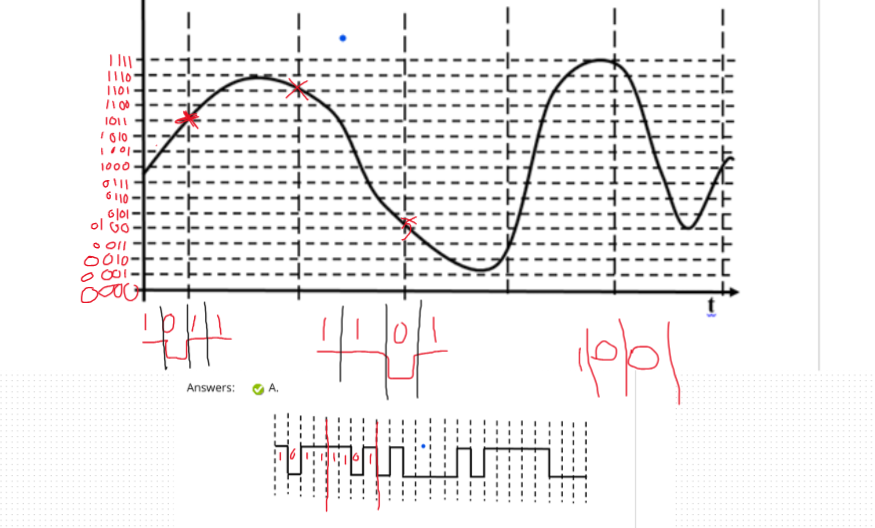 1111
1110
1101
1100
1011
1010
1001
1000
0111
0110
0101
0100
0011
0010
0001
0000
t
1 0 1 1
1 1 0 1
1 0 0
Answers: A.
1 0 1 1 1 1 0 1